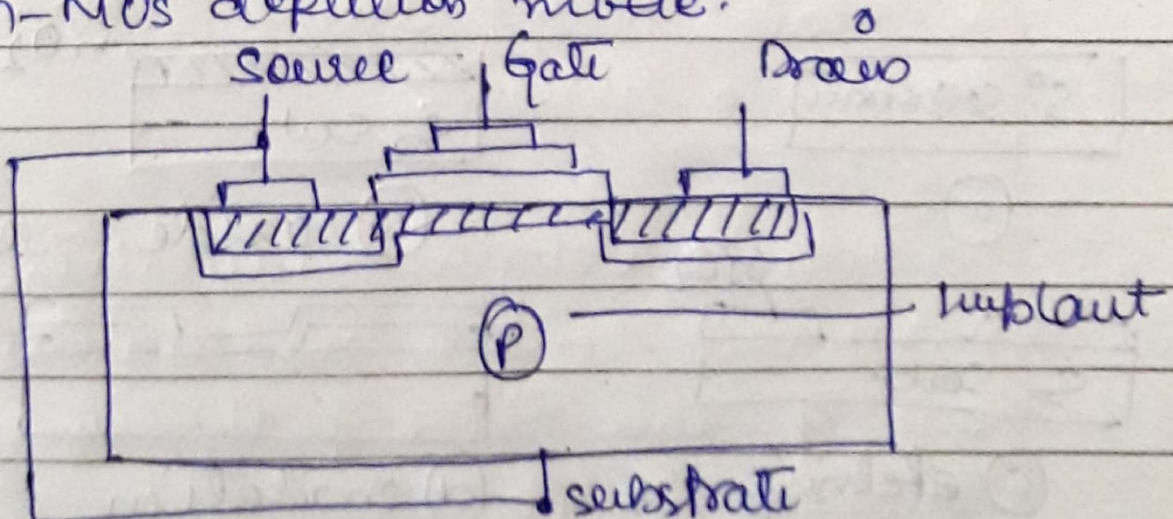 n-MOS depletion mode.
Source Gate Drain
Implant
P
substrate